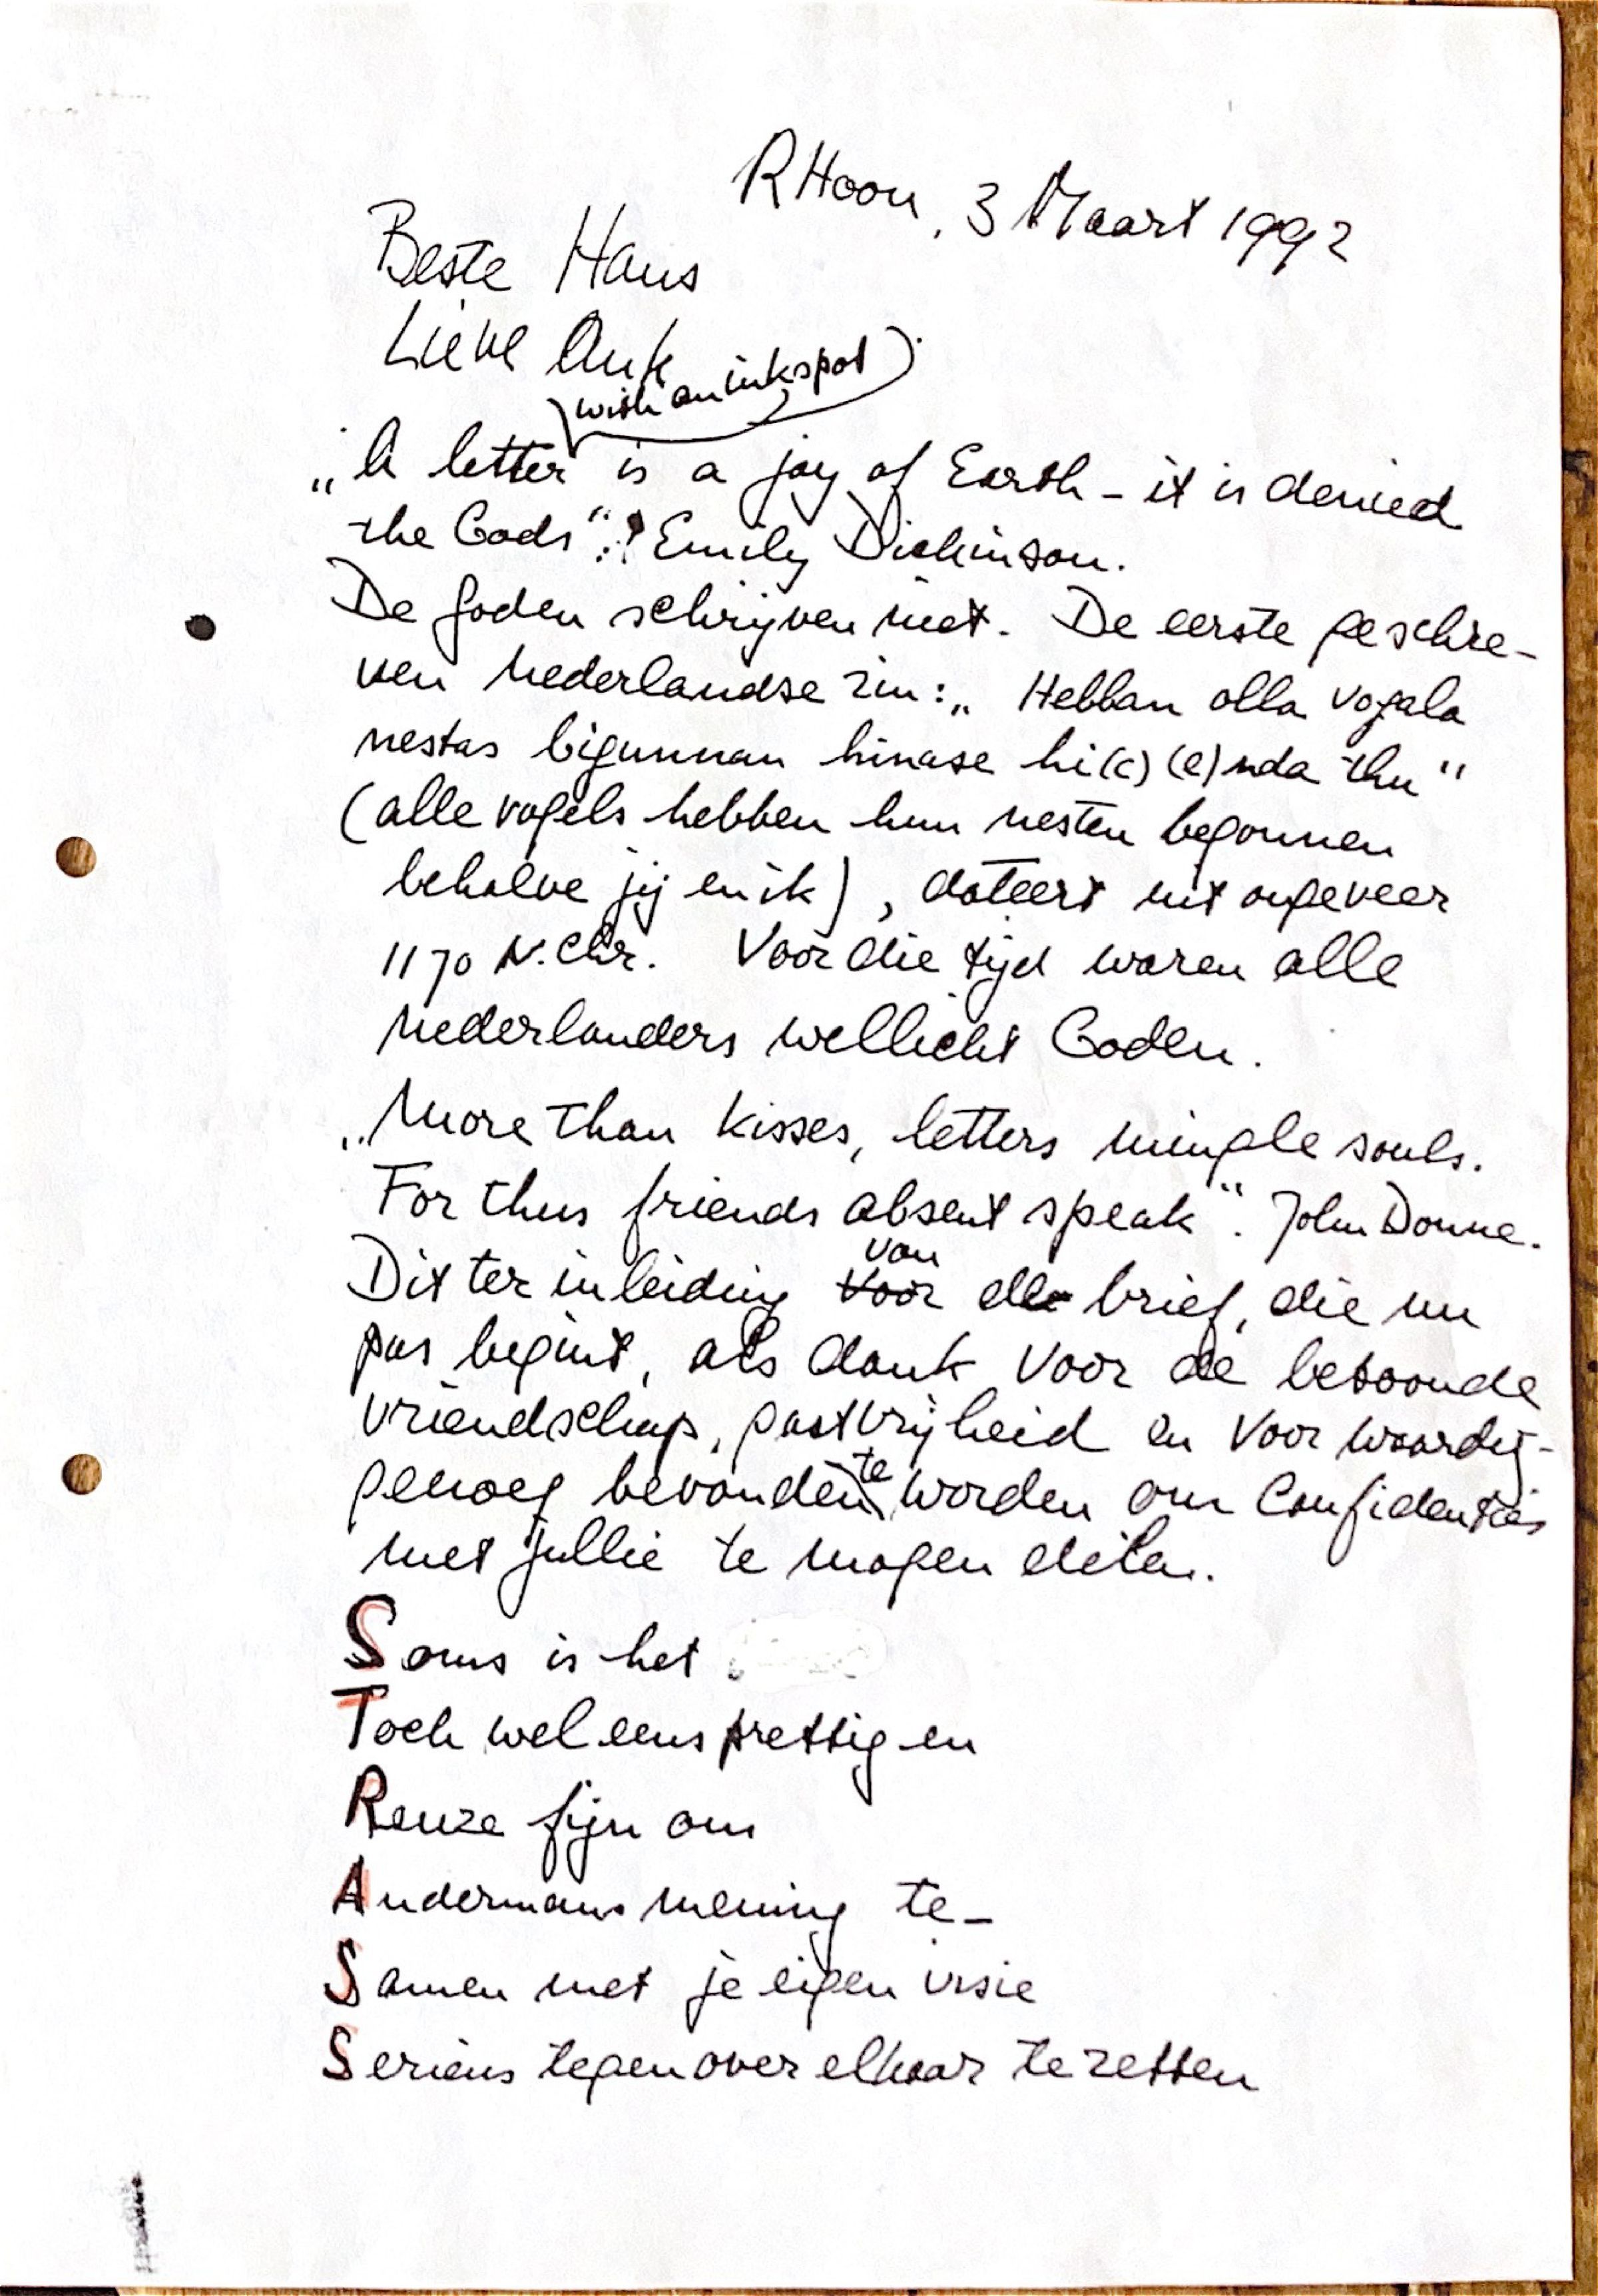 RHoon, 3 Maart 1992
Beste Hans
Lieve Auk
(with an inkspot)
„A letter is a joy of Earth – it is denied
the Gods“: Emily Dickinson.
De goden schrijven niet. De eerste geschre-
ven Nederlandse zin: „Hebban olla vogala
nestas bigunnan hinase hi(c) (e)nda thu“
(alle vogels hebben hun nesten begonnen
behalve jij en ik), dateert uit ongeveer
1170 N.Chr. Voor die tijd waren alle
Nederlanders wellicht Goden.
„More than kisses, letters mingle souls.
For thus friends absent speak“. John Donne.
van
Dit ter inleiding voor de brief, die nu
pas begint, als dank voor de betoonde
vriendschap, gastvrijheid en voor waardig-
te
genoeg bevonden worden om Confidenties
met jullie te mogen delen.
Soms is het
Toch wel eens prettig en
Reuze fijn om
Andermans mening te-
Samen met je eigen visie
Serieus tegenover elkaar te zetten